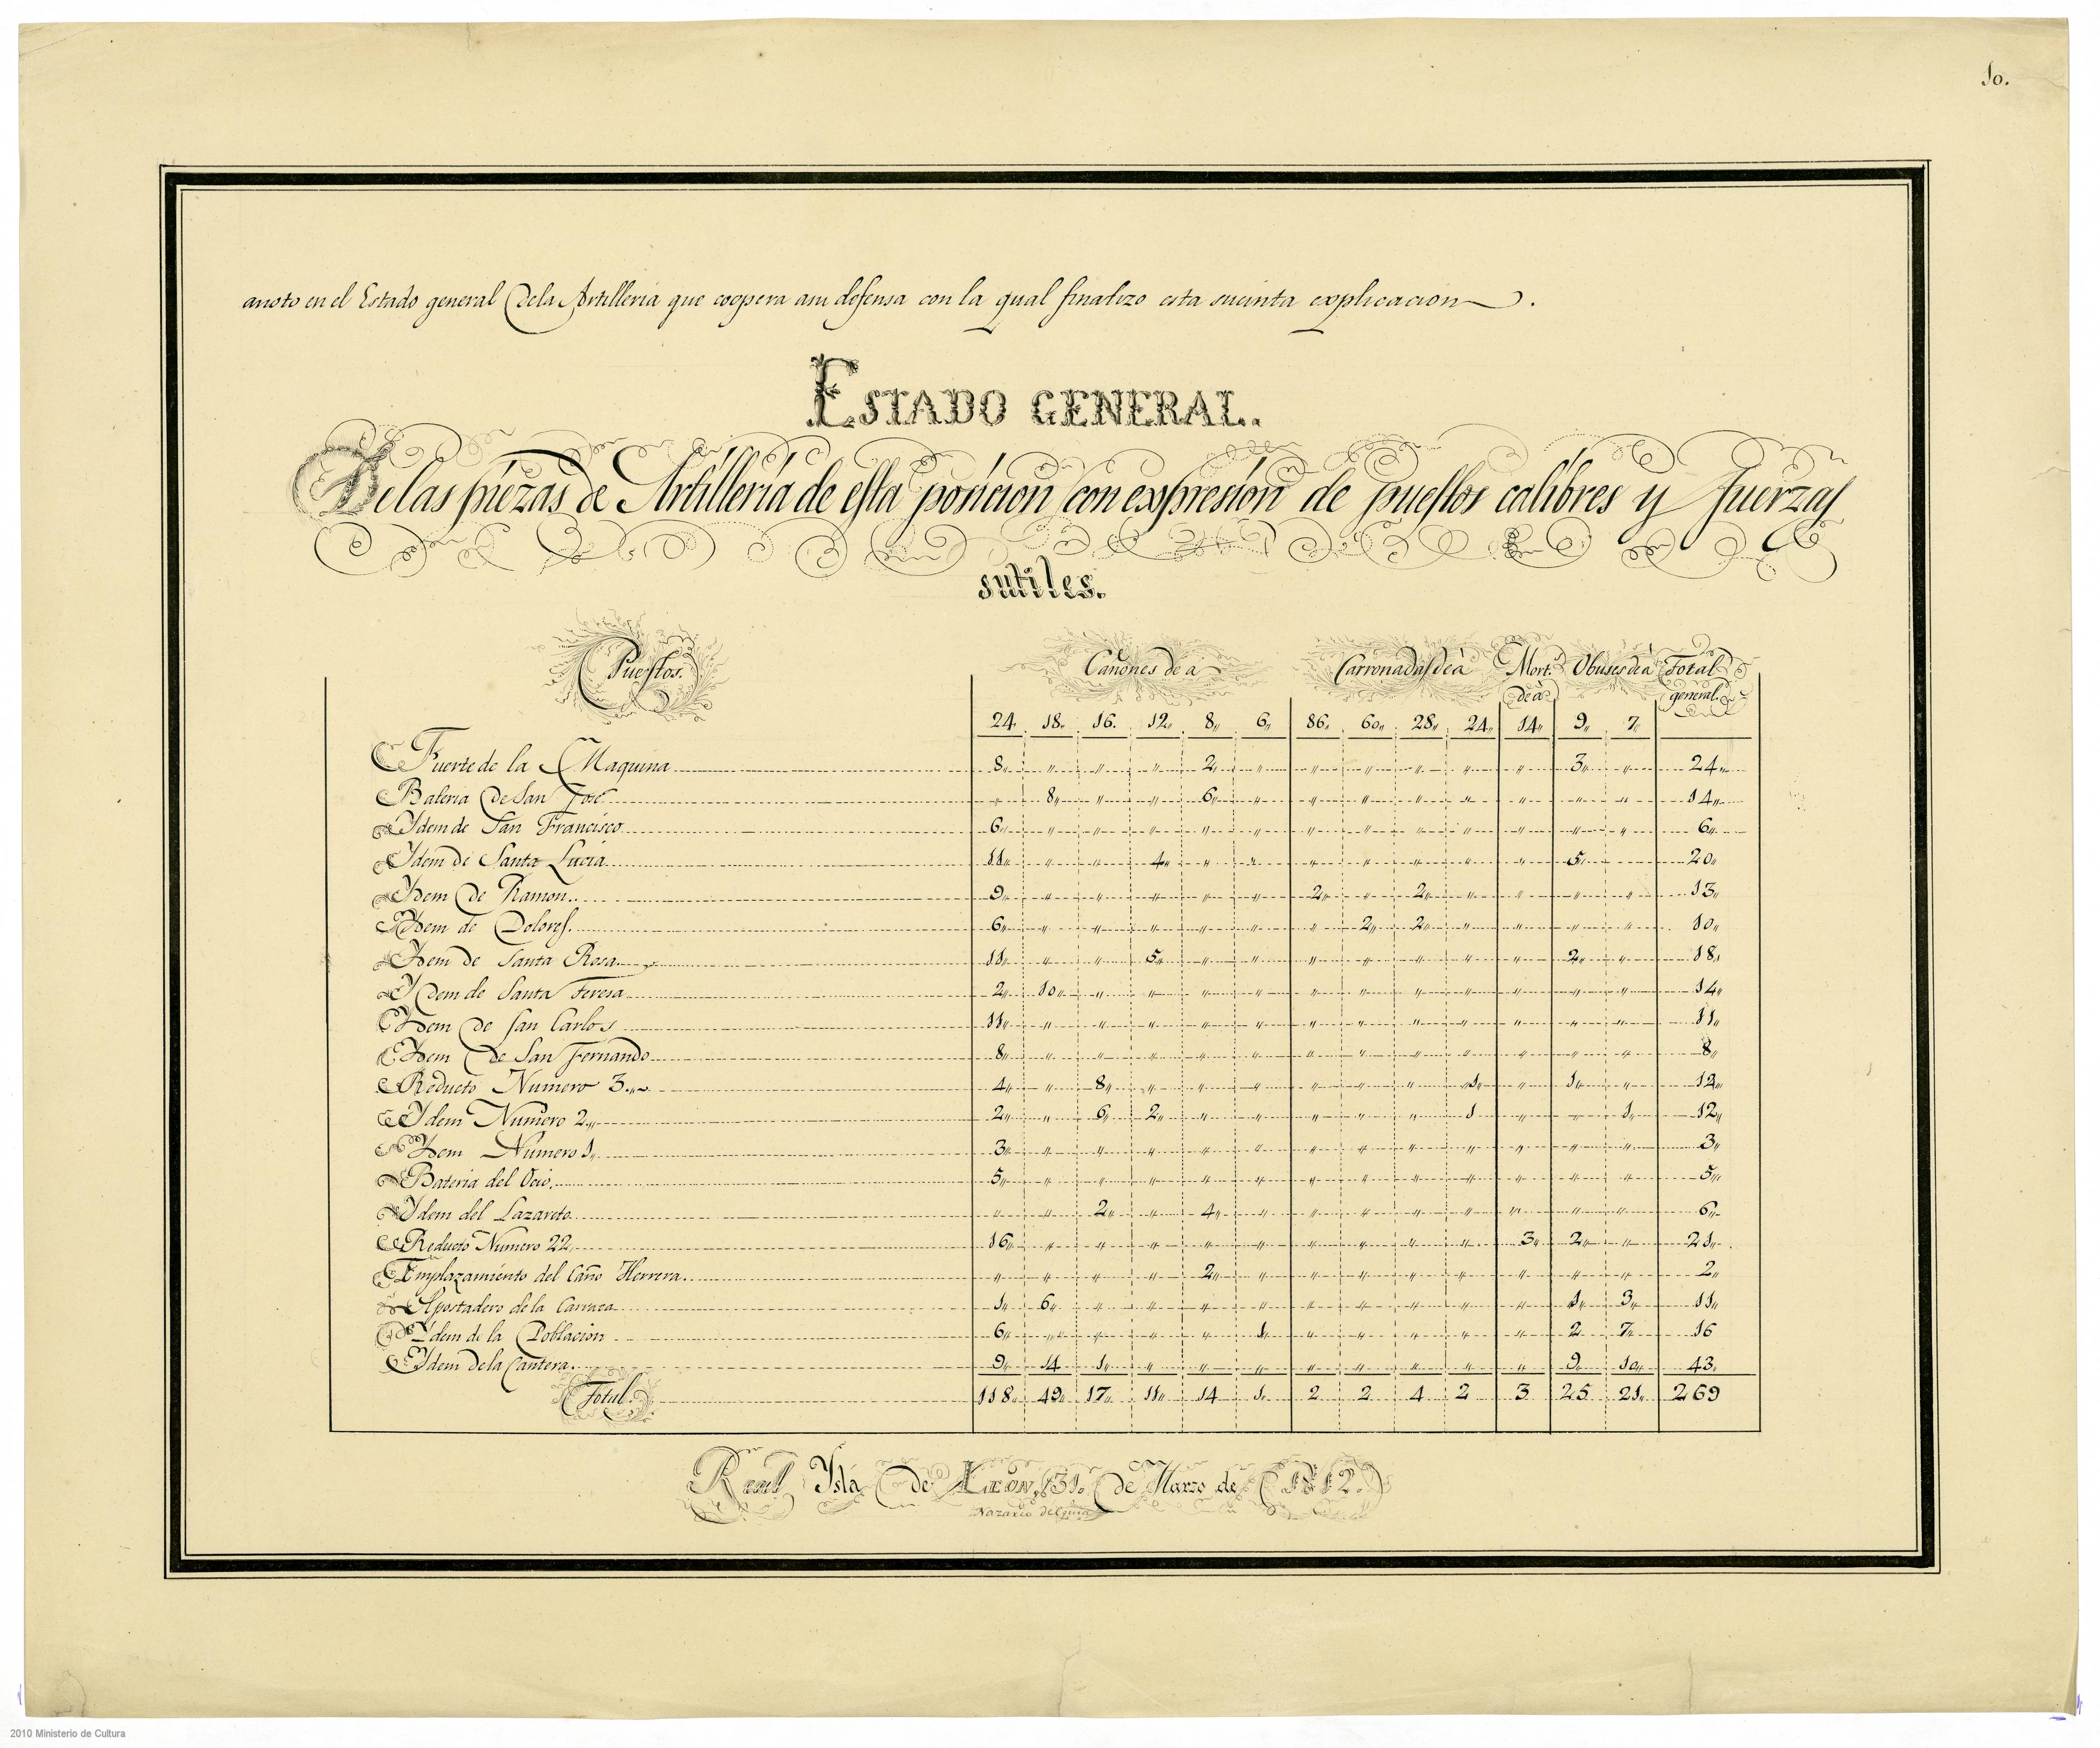 10.
anoto en el Estado general dela Artilleria que coopera asu defensa con la qual finalizo esta sucinta explicacion.
ESTADO GENERAL.
De las piezas de Artilleria de esta posicion con expresion de puestos calibres y fuerzas
sutiles.
Puestos. Cañones de a Carronadas de à Mort.s de à Obuses de à Total general.
24. 18. 16. 12. 8. 6. 86. 60. 28. 24. 14. 9. 7.
Fuerte de la Maquina 8 " " " 2 " " " " " " 3 " 24
Bateria de San José " 8 " " 6 " " " " " " " " 14
Ydem de San Francisco 6 " " " " " " " " " " " " 6
Ydem de Santa Lucia 11 " " 4 " " " " " " " 5 20
Ydem de Ramon 9 " " " " " 2 " 2 " " " " 13
Ydem de Dolores 6 " " " " " " 2 2 " " " " 10
Ydem de Santa Rosa 11 " " 5 " " " " " " " 2 " 18
Ydem de Santa Teresa 2 10 " " " " " " " " " " " 14
Ydem de San Carlos 11 " " " " " " " " " " " " 11
Ydem de San Fernando 8 " " " " " " " " " " " " 8
Reducto Numero 3 4 " 8 " " " " " " 1 " 1 " 12
Ydem Numero 2 2 " 6 2 " " " " " 1 " " 1 12
Ydem Numero 1 3 " " " " " " " " " " " " 3
Bateria del Ocio. 5 " " " " " " " " " " " " 5
Ydem del Lazareto " " 2 " 4 " " " " " " " " 6
Reducto Numero 22 16 " " " " " " " " " 3 2 " 21
Emplazamiento del Caño Herrera. " " " " 2 " " " " " " " " 2
Apostadero de la Carraca 1 6 " " " " " " " " " 1 3 11
Ydem de la Poblacion 6 " " " " 1 " " " " " 2 7 16
Ydem dela Cantera. 9 14 1 " " " " " " " " 9 10 43
Total. 118 49 17 11 14 1 2 2 4 2 3 25 21 269
Real Ysla de LEON, 31. de Marzo de 1812.
Nazario
2010 Ministerio de Cultura